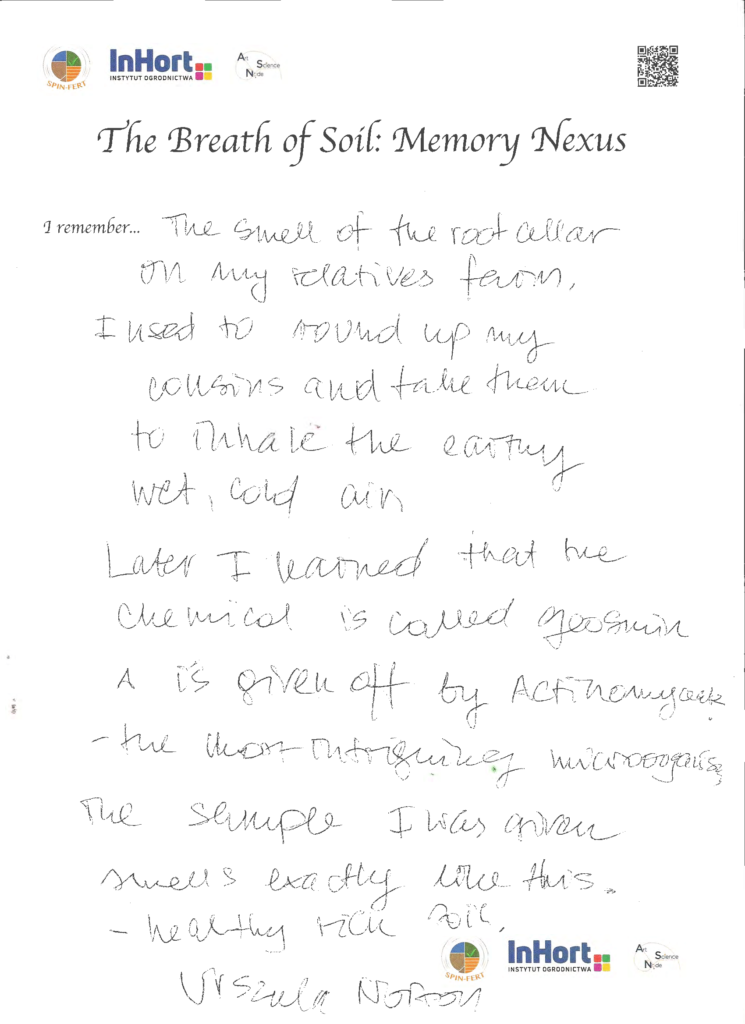 SPIN-FERT
InHort
INSTYTUT OGRODNICTWA
Art Science Node
The Breath of Soil: Memory Nexus
I remember... The smell of the root cellar
on my relatives farm,
I used to round up my
cousins and take them
to inhale the earthy
wet, cold air
Later I learned that the
chemical is called geosmin
is given off by Actinomycete
- the most intriguing
The sample I was given
smells exactly like this.
- healthy rich soil.
SPIN-FERT
InHort
INSTYTUT OGRODNICTWA
Art Science Node
Urszula Norton